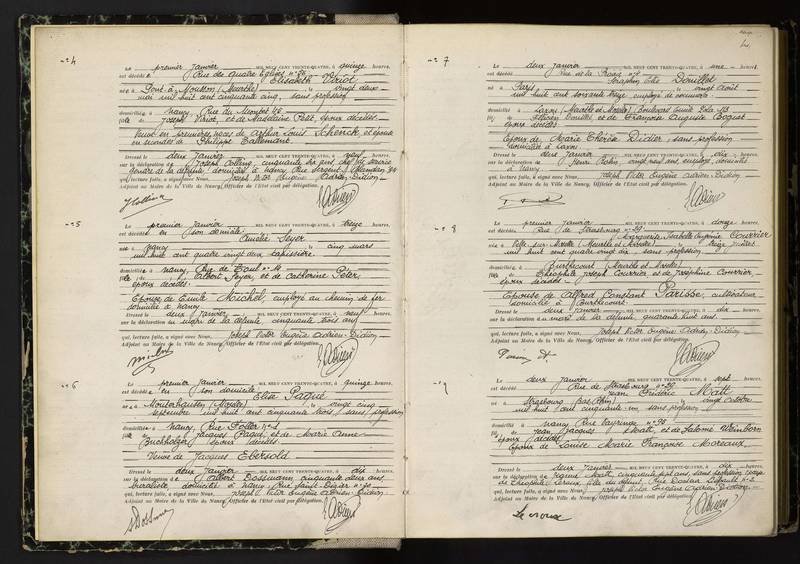 N° 4
Le premier janvier MIL NEUF CENT TRENTE-QUATRE, à quinze heures,
est décédée Rue des Quatre Eglises n° 86
Elisabeth Viriot
née à Pont-à-Mousson (Meurthe) vingt deux
mai mil huit cent cinquante cinq, sans profession
domiciliée à Nancy, Rue du Montet
fille de Joseph Viriot, et de Madeleine Petit, époux décédés
Veuve en premières noces de Arthur Louis Schenck, et épouse
en secondes de Philippe Tallemant
Dressé le deux janvier à neuf heures
sur la déclaration de Joseph Collin, cinquante six ans
gendre de la défunte, domicilié à Nancy, Rue Sergent Blandan
qui, lecture faite, a signé avec Nous, Joseph Victor Eugène Adrien-Didion
Adjoint au Maire de la Ville de Nancy, Officier de l'Etat civil par délégation.
JCollin Adrien
N° 5
Le premier janvier MIL NEUF CENT TRENTE-QUATRE, à treize heures,
est décédée en son domicile
Amélie Leyer
née à Nancy cinq mars
mil huit cent quatre vingt deux tapissière
domiciliée à Nancy, Rue de Toul n°
fille de Albert Leyer, et de Catherine Péter
époux décédés
Epouse de Emile Michel, employé au chemin de fer
domicilié à Nancy
Dressé le deux janvier à neuf heures
sur la déclaration du mari de la défunte, cinquante trois ans
qui, lecture faite, a signé avec Nous, Joseph Victor Eugène Adrien-Didion
Adjoint au Maire de la Ville de Nancy, Officier de l'Etat civil par délégation.
Michel Adrien
N° 6
Le premier janvier MIL NEUF CENT TRENTE-QUATRE, à quinze heures,
est décédée en son domicile
Elisa Paquet
née à Monterhausen (Moselle) vingt cinq
septembre mil huit cent cinquante trois, sans profession
domiciliée à Nancy, Rue Foller n° 1
fille de Jacques Paquet, et de Marie Anne
Buchholzer époux décédés
Veuve de Jacques Ebersold
Dressé le deux janvier à dix heures
sur la déclaration de Albert Dossmann, cinquante deux ans
domicilié à Nancy, Rue Saint-Dizier n°
qui, lecture faite, a signé avec Nous, Joseph Victor Eugène Adrien-Didion
Adjoint au Maire de la Ville de Nancy, Officier de l'Etat civil par délégation.
ADossmann Adrien
N° 7
Le deux janvier MIL NEUF CENT TRENTE-QUATRE, à une heures,
est décédé Rue de la Prairie
Séraphin Elie Douillet
né à Paris vingt août
mil huit cent soixante treize, employé de commerce
domicilié à Laxou (Meurthe et Moselle) Boulevard Emile Zola
fils de Douillet et de Françoise Auguste
époux décédés
Epoux de Marie Thérèse Didier, sans profession
domiciliée à Laxou
Dressé le deux janvier à dix heures
sur la déclaration de Henri ans, employé, domicilié
à Nancy
qui, lecture faite, a signé avec Nous, Joseph Victor Eugène Adrien-Didion
Adjoint au Maire de la Ville de Nancy, Officier de l'Etat civil par délégation.
Adrien
N° 8
Le premier janvier MIL NEUF CENT TRENTE-QUATRE, à douze heures,
est décédée Rue de Strasbourg n° 29
Marguerite Isabelle Eugénie Courrier
née à Velle-sur-Moselle (Meurthe et Moselle) treize juillet
mil huit cent quatre vingt dix, sans profession
domiciliée à Burthecourt (Meurthe et Moselle)
fille de Théophile Joseph Courrier et de Joséphine Courrier,
époux décédés
Epouse de Alfred Constant Parisse, cultivateur
domicilié à Burthecourt
Dressé le deux janvier à dix heures
sur la déclaration du mari de la défunte, quarante huit ans
qui, lecture faite, a signé avec Nous, Joseph Victor Eugène Adrien-Didion
Adjoint au Maire de la Ville de Nancy, Officier de l'Etat civil par délégation.
Adrien
N° 9
Le deux janvier MIL NEUF CENT TRENTE-QUATRE, à sept heures,
est décédé Rue de Strasbourg n° 29
Jean Frédéric Matt
né à Strasbourg (Bas-Rhin) vingt octobre
mil huit cent cinquante-un, sans profession
domicilié à Nancy Rue n° 90
fils de Jean Jacques Matt, et de Salomé Weinborn
époux décédés
Epoux de Louise Marie Françoise Moreaux
Dressé le deux janvier à dix heures
sur la déclaration de Matt, cinquante sept ans, sans profession
de Leroux, fille du défunt, Rue
qui, lecture faite, a signé avec Nous, Joseph Victor Eugène Adrien-Didion
Adjoint au Maire de la Ville de Nancy, Officier de l'Etat civil par délégation.
Leroux Adrien